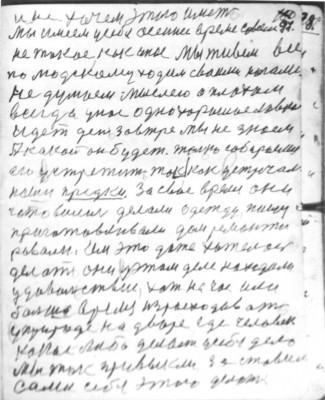 и не хочем этого иметь.
Мы имеем у себя осеннее время совсем 97.
не такое как иное Мы живем все
по людскому ходим своими ногами
не думаем мыслею о плохом
всегда у нас одно хорошее
идет ден завтре мы не знаем
А какой он будет. только собираемся
его устретить. так, как устречали
наши предки. За свое время они
готовилис делали одежду, пищу
приготавливали дом ремонти
ровали. Им это даже хотелося
делать они у этом деле находили
удовольствие, хот не час или
больше время израсходовать
у природе на дворе где человек
какое либо делает себе дело
Мы так привыкли заставили
сами себя этого делать